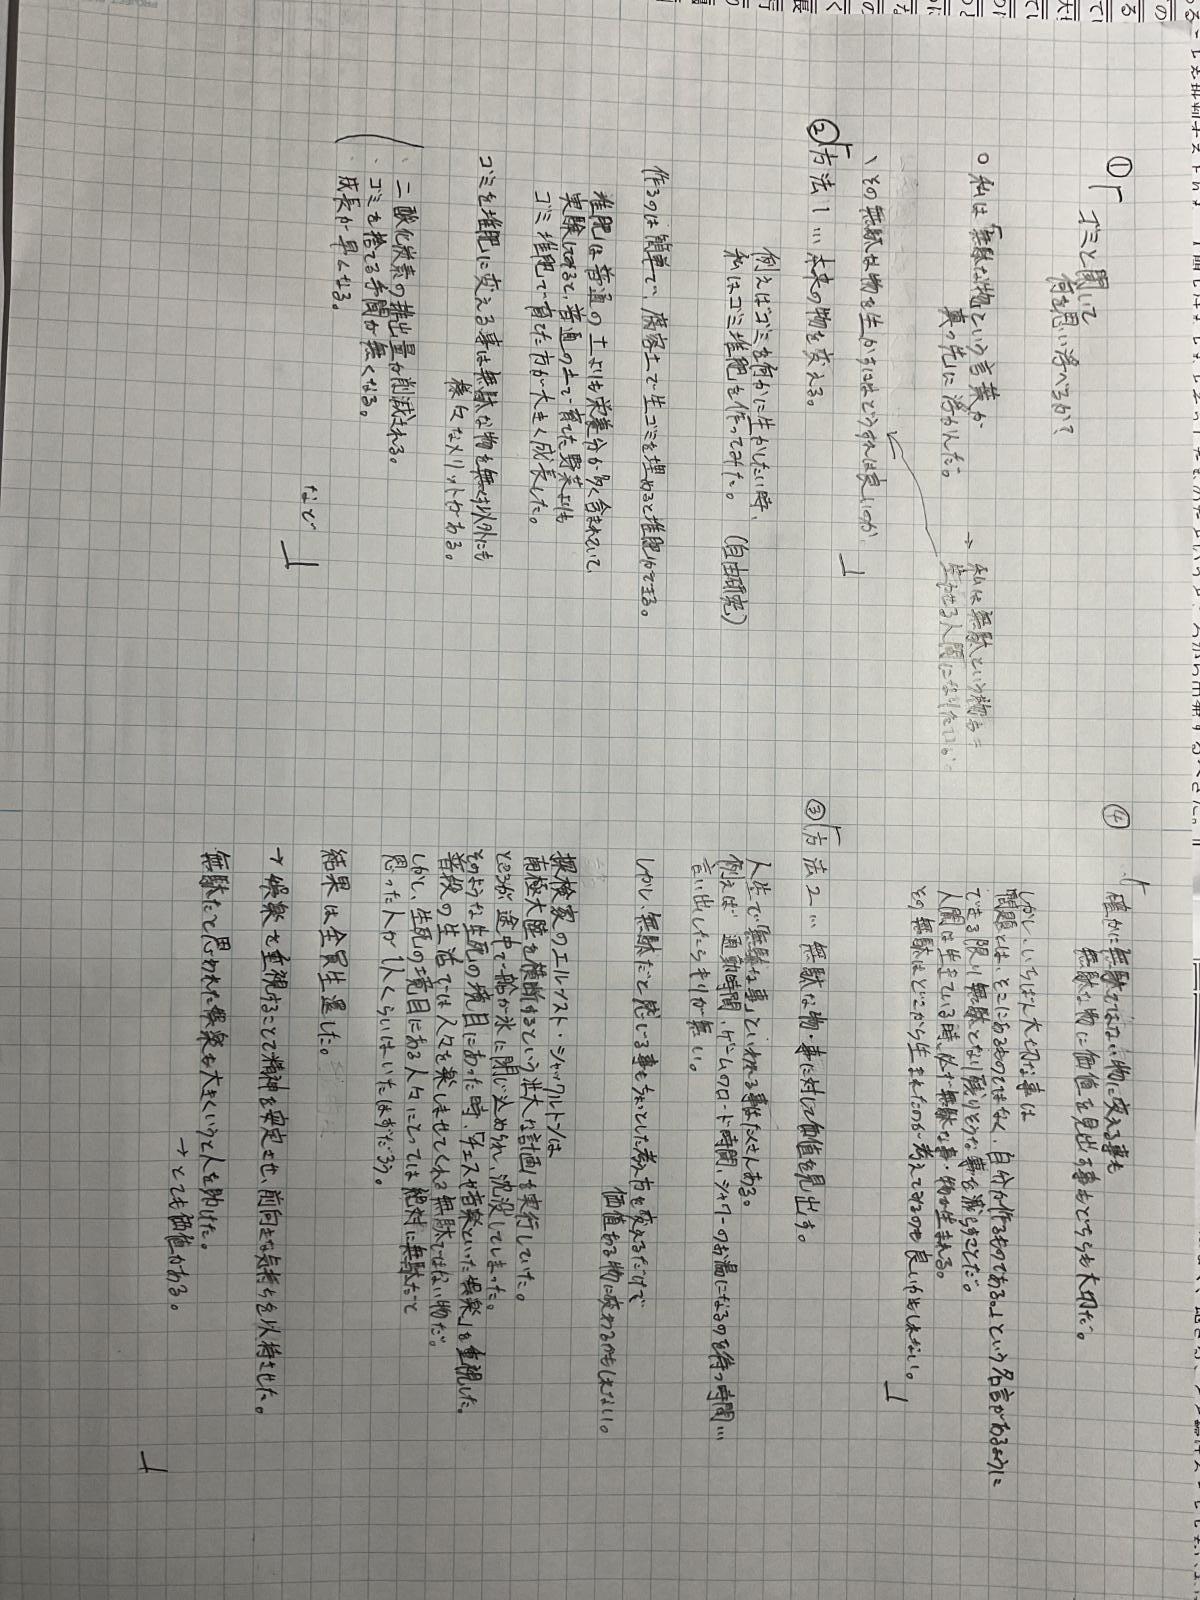 ①
ゴミと聞いて
何を思い浮べるか?
○ 私は「無駄な物」という言葉が
真っ先に浮かんだ。
→ 私は無駄という物を
生かせる人間になりたい
、その無駄な物を生かすにはどうすれば良いのか
②「方法1… 本来の物を変える。
例えばゴミを何かに生かしたい時、
私はゴミ堆肥を作ってみた。(自由研究)
作るのは簡単で、腐葉土で生ゴミを埋めると堆肥ができる。
堆肥は普通の土よりも栄養分が多く含まれていて
実験してみると、普通の土で育てた野菜よりも
ゴミ堆肥で育てた方が大きく成長した。
ゴミを堆肥に変える事は無駄な物を無くす以外にも
様々なメリットがある。
・二酸化炭素の排出量が削減される。
・ゴミを捨てる手間が無くなる。
・成長が早くなる。
など
④
確かに無駄ではない物に変える事も
無駄な物に価値を見出す事もどちらも大切だ。
しかし、いちばん大切な事は
「問題とは、そこにあるものではなく、自分が作るものである。」という名言があるように
できる限り無駄となり残りそうな事を減らすことだ。
人間は生きている時、必ず無駄な事・物が生まれる。
その無駄はどこから生まれたのか考えてみるのも良いかもしれない。
③「方法2… 無駄な物・事に対して価値を見出す。
人生で「無駄な事」といわれる事はたくさんある。
例えば 通勤時間、ゲームのロード時間、シャワーのお湯になるのを待つ時間…
言い出したらキリが無い。
しかし、無駄だと感じる事もちょっとした考え方を変えるだけで
価値ある物に変わるかもしれない。
探検家のエルネスト・シャックルトンは
南極大陸を横断するという壮大な計画を実行していた。
ところが途中で船が氷に閉じ込められ、沈没してしまった。
そのような生死の境目にあった時、「チェスや音楽といった娯楽」を重視した。
普段の生活では人々を楽しませてくれる無駄ではない物だ。
しかし、生死の境目にある人々にとっては絶対に無駄だと
思った人が1人くらいはいたはずだろう。
結果は全員生還した。
→ 娯楽を重視することで精神を安定させ、前向きな気持ちを維持させた。
無駄だと思われた娯楽も大きくいうと人を助けた。
→ とても価値がある。